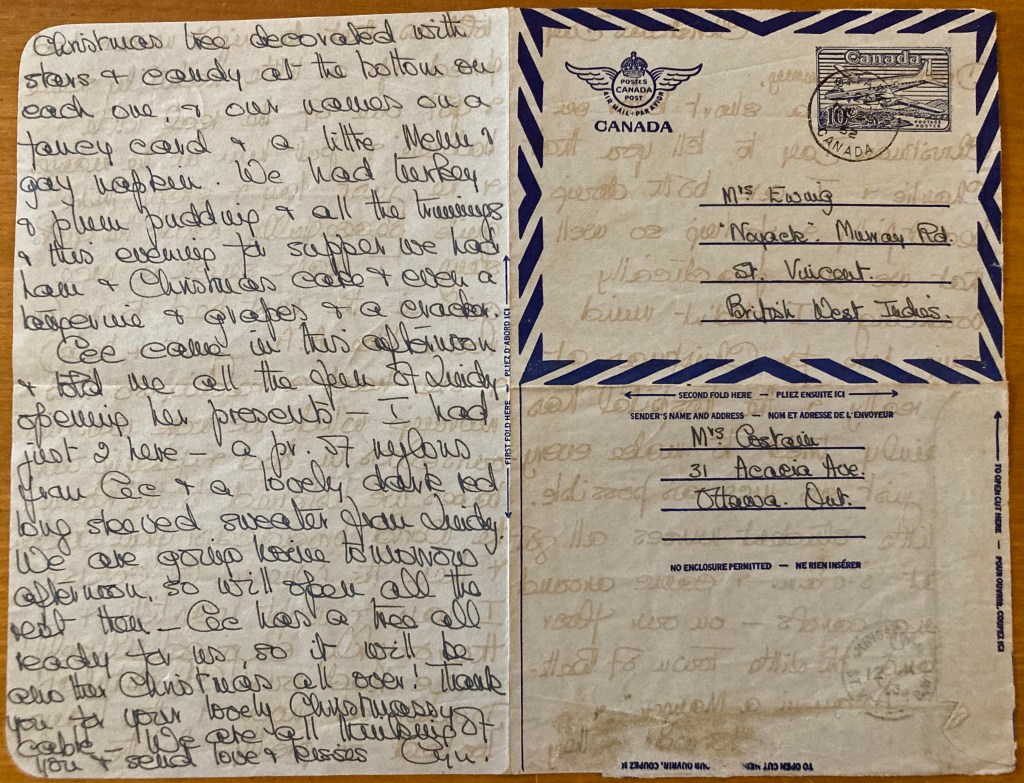 Christmas tree decorated with
stars & candy at the bottom on
each one, & our names on a
fancy card & a little Merry?
gay napkin. We had turkey
& plum pudding & all the trimmings
& this evening for supper we had
ham & Christmas cake & even a
tangerine & grapes & a cracker.
Cec came in this afternoon
& told me all the fun of Lindy
opening her presents — I had
just 2 here — a pr. of nylons
from Cec & a lovely dark red
long sleeved sweater from Lindy.
We are going home tomorrow
afternoon, so will open all the
rest then — Cec has a tree all
ready for us, so it will be
another Christmas all over! Thank
you for your lovely Christmassy
cable — We are all thinking of
you & send love & kisses Cyn.
FIRST FOLD HERE — PLIEZ D'ABORD ICI
POSTES
CANADA
POST
AIR MAIL • PAR AVION
CANADA
Canada
10¢
POSTAGE
POSTES
52
CANADA
Mrs Ewing
"Noyack". Murray Rd.
St. Vincent.
British West Indies.
SECOND FOLD HERE — PLIEZ ENSUITE ICI
SENDER'S NAME AND ADDRESS — NOM ET ADRESSE DE L'ENVOYEUR
Mrs Costain
31 Acacia Ave.
Ottawa. Ont.
NO ENCLOSURE PERMITTED — NE RIEN INSÉRER
TO OPEN CUT HERE — POUR OUVRIR, COUPEZ ICI
TO OPEN CUT HERE
POUR OUVRIR, COUPEZ I